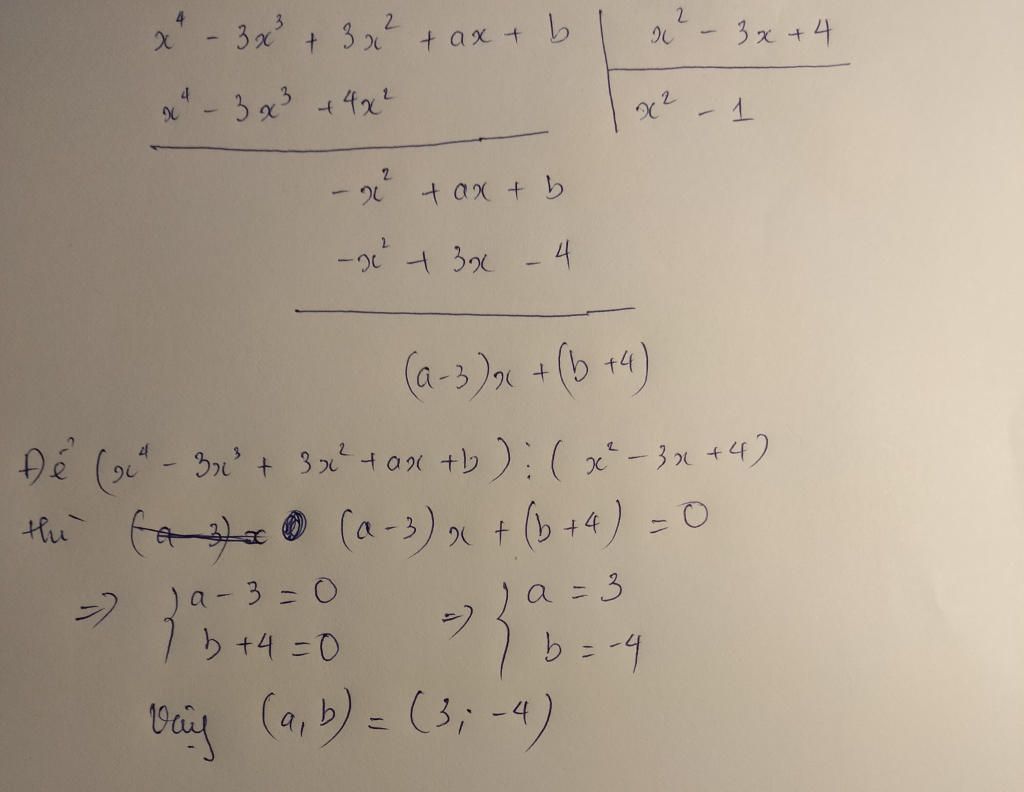 x⁴ - 3x³ + 3x² + ax + b | x² - 3x + 4
x⁴ - 3x³ + 4x² | x² - 1
-x² + ax + b
-x² + 3x - 4
(a-3)x + (b+4)
Để (x⁴ - 3x³ + 3x² + ax + b) ⋮ (x² - 3x + 4)
thì (a-3)x + (b+4) = 0
=> { a - 3 = 0 => { a = 3
b + 4 = 0 b = -4
Vậy (a, b) = (3; -4)